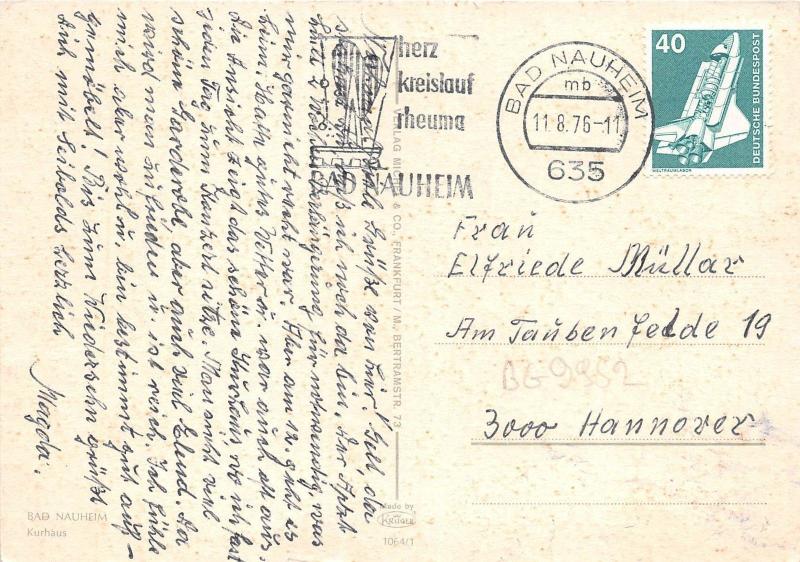 herz
kreislauf
rheuma
BAD NAUHEIM
BAD NAUHEIM
mb
11.8.76-11
635
40
DEUTSCHE BUNDESPOST
WELTRAUMLABOR
Frau
Elfriede Müllar
Am Taubenfelde 19
3000 Hannover
BG 9952
Grüße von mir! Gell, da
ich noch da bin. Der Arzt
2 Verlängerung für notwendig, was
mir gar nicht recht war. Aber am 12. geht es
heim. Hatte gutes Wetter u. war auch oft aus.
Die Ansicht zeigt das schöne Kurhaus wo ich fast
jeden Tag zum Konzert sitze. Man sieht viel
schöne Garderobe, aber auch viel Elend. Da
wird man zufrieden u. ist reich. Ich fühle
mich aber wohl u. bin bestimmt gut auf-
gemöbelt! Bis zum Wiedersehn grüßt
Dich mit Seibolds herzlich
Magda.
VERLAG & CO., FRANKFURT/M., BERTRAMSTR. 73
BAD NAUHEIM
Kurhaus
Made by
KRÜGER
1064/1